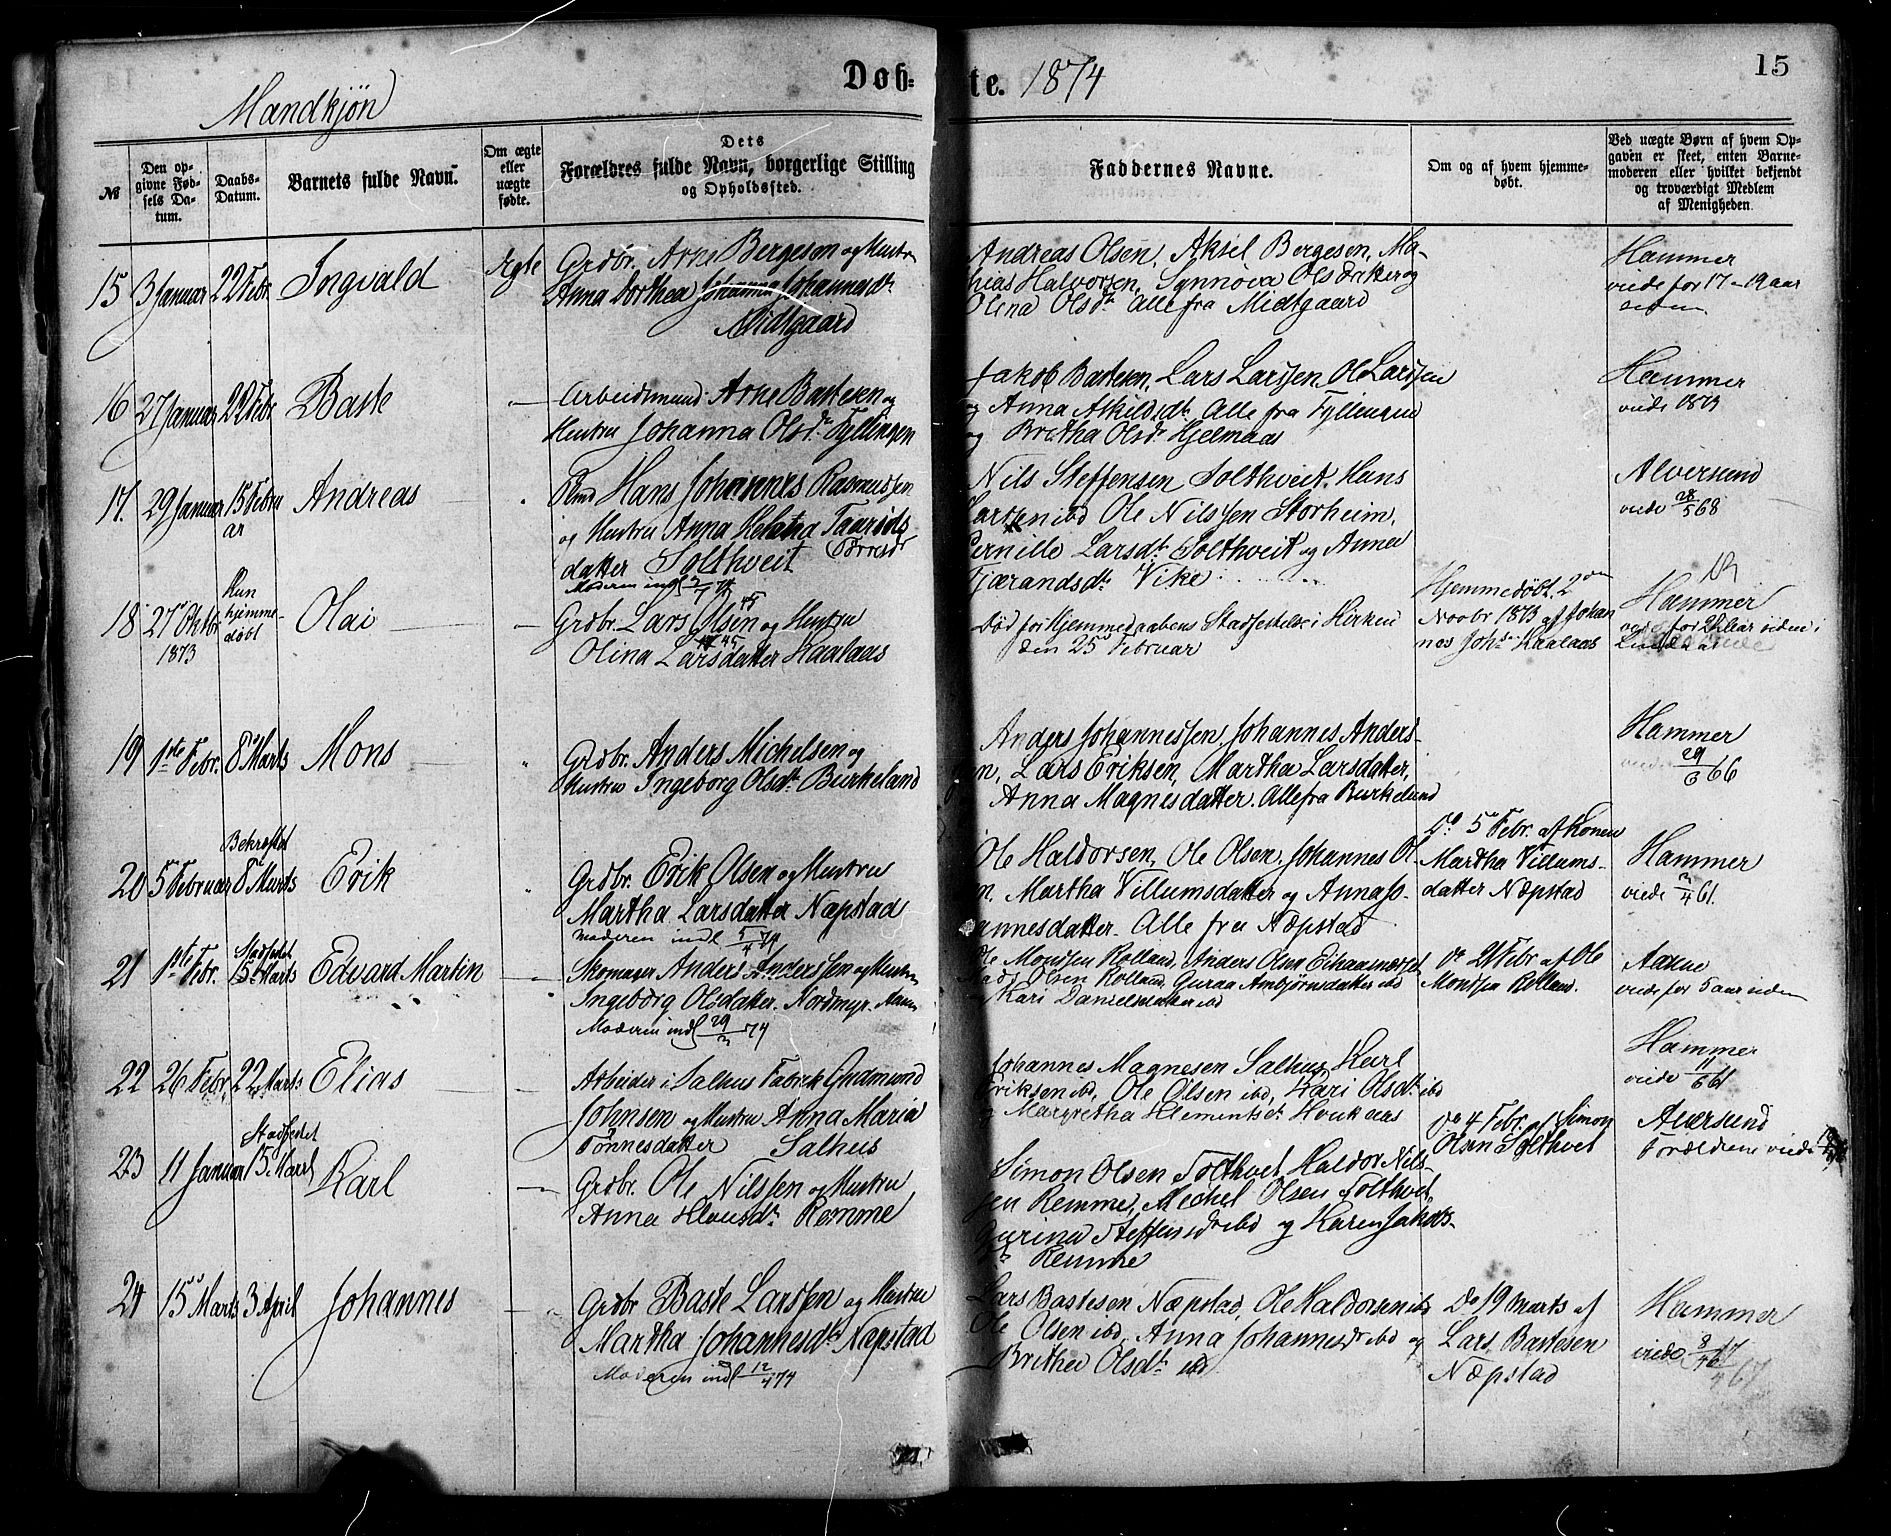 Mandkjön
Døb=te. 1874
15
№
Den opgivne Fødsels Datum.
Daabs-Datum.
Barnets fulde Navn.
Om ægte eller uægte fødte.
Dets Forældres fulde Navn, borgerlige Stilling og Opholdssted.
Faddernes Navne.
Om og af hvem hjemmedøbt.
Ved uægte Børn af hvem Opgaven er skeet, enten Barnemoderen eller hvilket bekjendt og troværdigt Medlem af Menigheden.
15 3 Januar 22 Febr. Ingvald Ægte
Grdbr. Arne Bergeson og Hustru
Anna Dorthea Johanna Johannesdtr
Midtgaard
Andreas Olsen, Aksel Bergesen, Ma-
hias Halvorsen, Synnöva Olsdatter og
Olina Olsdtr alle fra Midtgaard
Hammer
viede for 17-19 aar
siden
16 27 Januar 22 Febr Baste —
Arbeidsmand Arne Bastesen og
Hustru Johanna Olsdtr Fyllingen
Jakob Bastesen, Lars Larssen, Ole Larssen
og Anna Askildsdtr Alle fra Fyllingen
og Britha Olsdtr Hjelmaas
Hammer
viede 1873
17. 29 Januar 15 Februar Andreas
Hans Johannes Rasmussen
og Hustru Anna Helena Taarøds
datter Solthveit
Moderen indl
Nils Steffensen Solthveit, Hans
Larssen ibd Ole Nilssen Storheim,
Pernille Larsdtr Solthveit og Anna
Fjærandsdtr Vike
Alversund
viede 28/5 68
18 27 Oktbr 1873
Kun hjemme-døbt
Olai —
Grdbr. Lars Olsen og Hustru
Olina Larsdatter Kaalaas
Død før Hjemmedaabens Stadfestelse i Kirken
den 25 Februar
Hjemmedøbt 2den
Novbr 1873 af Johan
nes Johs. Kaalaas
Hammer
viede for 22 Aar siden i
19 1ste Febr. 8 Marts Mons
Grdbr. Anders Michelsen og
Hustru Ingeborg Olsdtr Burkeland
Anders Johannessen, Johannes Anders-
en, Lars Eriksen, Martha Larsdatter,
Anna Magnesdatter. Alle fra Burkeland
Hammer
viede 29/6 66
20 5 Februar
Bekræftet
8 Marts Erik
Grdbr. Erik Olsen og Hustru
Martha Larsdatter Næpstad
Moderen indl 5/4 74
Ole Haldorsen, Ole Olsen, Johannes Ol-
en, Martha Villumsdatter og Anna Jo-
hannesdatter. Alle fra Næpstad
Do 5 Febr. af Konen
Martha Villums-
datter Næpstad
Hammer
viede 2/4 61.
21 1ste Febr.
Stadfestet
15 Marts Edvard Martin —
Skomager Anders Anderssen og Hustru
Ingeborg Olsdatter. Nordmyr.
Moderen indl 29/3 74
Ole Monssen Rolland, Anders Olsen
Olsen Rolland, Guraa Ambjörnsdatter ibd
Kari Danielsdatter ibd
do 21 Febr af Ole
Monssen Rolland.
viede for 5 aar siden
22 26 Febr. 22 Marts Elias —
Arbeider i Salhus Fabrik Gudmund
Johnsen og Hustru Anna Maria
Tønnesdatter Salhus
Johannes Magnesen Salhus, Karl
Eriksen ibd, Ole Olsen ibd, Kari Olsdtr ibd
Margretha Klementsdtr Haukaas
Hammer
viede 11/6 61
23 11 Januar
Stadfestet
15. Marts Karl —
Grdbr. Ole Nilssen og Hustru
Anna Hansdtr Remme
Simon Olsen Solthvet, Haldor Nils-
sen Remme, Michel Olsen Solthvet,
Steffensdtr ibd og Karen Jakobs-
Remme
do 4 Febr. af Simon
Olsen Solthvet
Alversund
Forældrene viede
24 15 Marts 3 April Johannes —
Grdbr Baste Larssen og Hustru
Martha Johannesdtr Næpstad
Moderen indl 12/4 74
Lars Bastesen Næpstad, Ole Haldorsen ibd
Ole Olsen ibd, Anna Johannesdtr ibd og
Britha Olsdtr ibd
Do 19 Marts af
Lars Bastesen
Næpstad
Hammer
viede